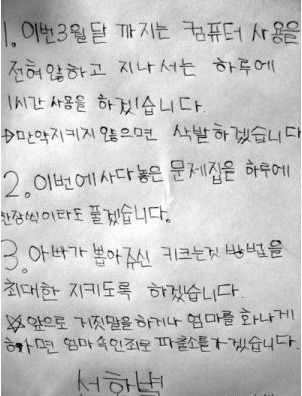 1. 이번3월달 까지는 컴퓨터 사용을
전혀않하고 지나서는 하루에
1시간 사용을 하겠습니다.
▷만약지키지 않으면 삭발하겠습니다
2. 이번에사다놓은 문제집을 하루에
한장씩이라도 풀겠습니다.
3. 아빠가 뽑아주신 키크는것 방법을
최대한 지키도록 하겠습니다.
☆앞으로 거짓말을하거나 엄마를 화나게
하면 엄마속인죄로